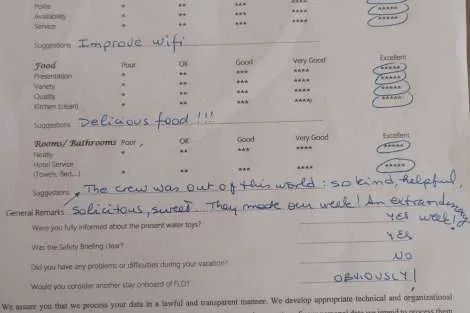 Polite * ** *** *****
Availability * ** *** **** *****
Service * ** *** ****
Suggestions Improve wifi
Food Poor OK Good Very Good Excellent
Presentation * ** *** **** *****
Variety * ** *** **** *****
Quality * ** *** **** *****
Kitchen (clean) * ** *** **** *****
Suggestions Delicious food !!!
Rooms/ Bathrooms Poor OK Good Very Good Excellent
Neatly * ** *** **** *****
Hotel Service
(Towels, Bed,...) * ** *** **** *****
Suggestions The crew was out of this world: so kind, helpful,
General Remarks solicitous, sweet. They made our week! An extraordinary
week!
Were you fully informed about the present water toys? YES
Was the Safety Briefing clear? YES
Did you have any problems or difficulties during your vacation? NO
Would you consider another stay onboard of FLO? OBVIOUSLY!
We assure you that we process your data in a lawful and transparent manner. We develop appropriate technical and organizational
personal data we intend to process them